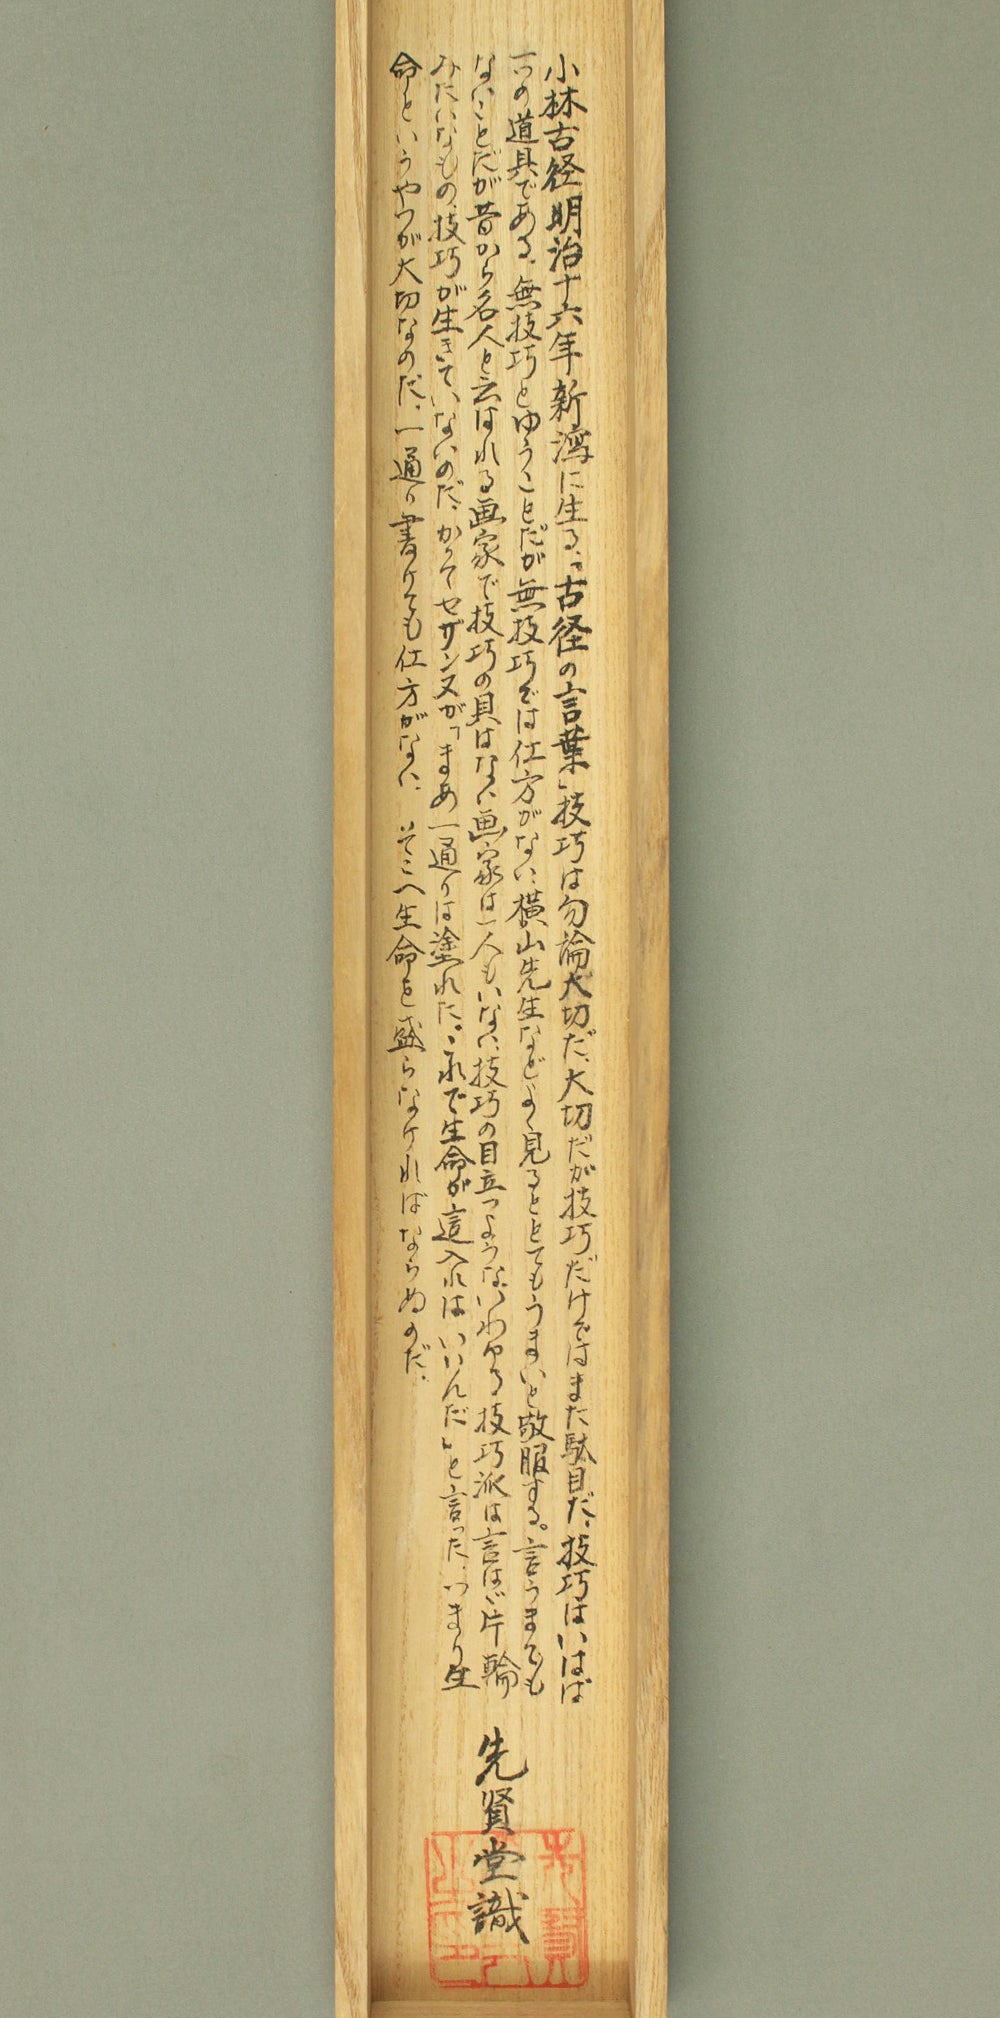 小林古径明治十六年新潟に生る、「古径の言葉」技巧は勿論大切だ、大切だが技巧だけではまた駄目だ、技巧はいはば
一つの道具である、無技巧とゆうことだが無技巧では仕方がない、横山先生などよく見るととてもうまいと敬服する。言うまでも
ないことだが昔から名人と云はれる画家で技巧の具はない画家は一人もいない、技巧の目立つようないわゆる技巧派は言はゞ片輪
みたいなもの、技巧が生きていないのだ、かつてセザンヌが「まあ一通りは塗れた。これで生命が這入れはいいんだ」と言った、つまり生
命というやつが大切なのだ、一通り書けても仕方がない、そこへ生命を盛らなければならぬのだ、
先賢堂識